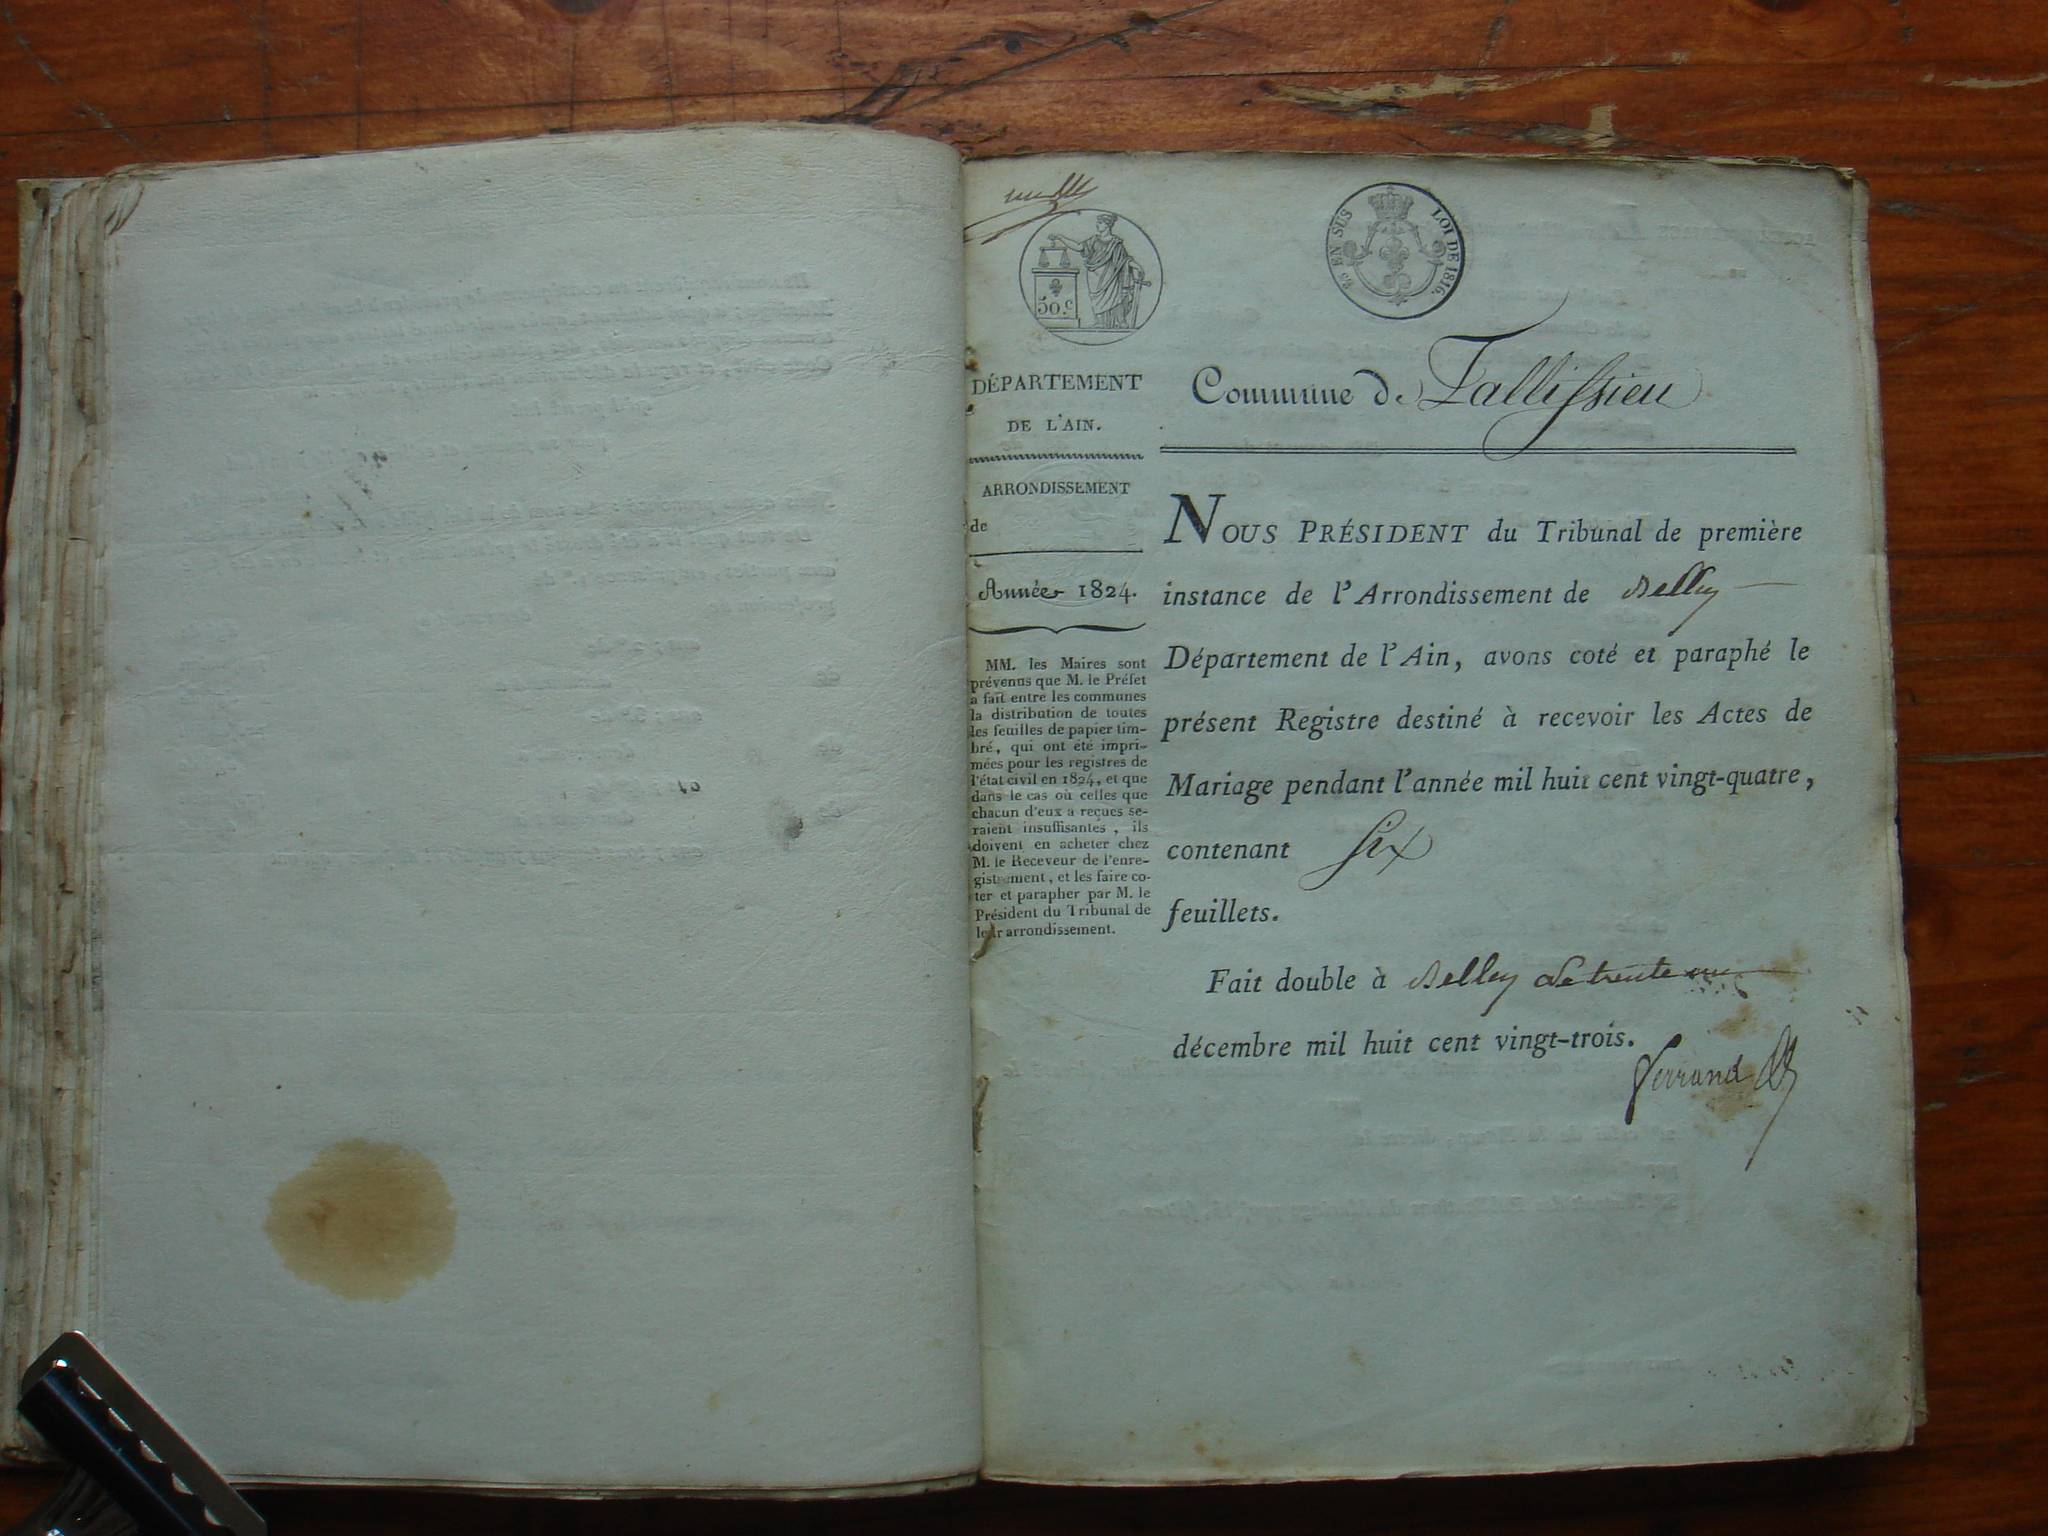 50.c
25 EN SUS LOI DE 1816.
DÉPARTEMENT
DE L'AIN.
ARRONDISSEMENT
de
Année 1824.
MM. les Maires sont
prévenus que M. le Préfet
a fait entre les communes
la distribution de toutes
les feuilles de papier tim-
bré, qui ont été impri-
mées pour les registres de
l'état civil en 1824, et que
dans le cas où celles que
chacun d'eux a reçues se-
raient insuffisantes, ils
doivent en acheter chez
M. le Receveur de l'enre-
gistrement, et les faire co-
ter et parapher par M. le
Président du Tribunal de
leur arrondissement.
Commune de Tallissieu
NOUS PRÉSIDENT du Tribunal de première
instance de l'Arrondissement de Belley
Département de l'Ain, avons coté et paraphé le
présent Registre destiné à recevoir les Actes de
Mariage pendant l'année mil huit cent vingt-quatre,
contenant Six
feuillets.
Fait double à Belley le trente un
décembre mil huit cent vingt-trois.
Ferrand